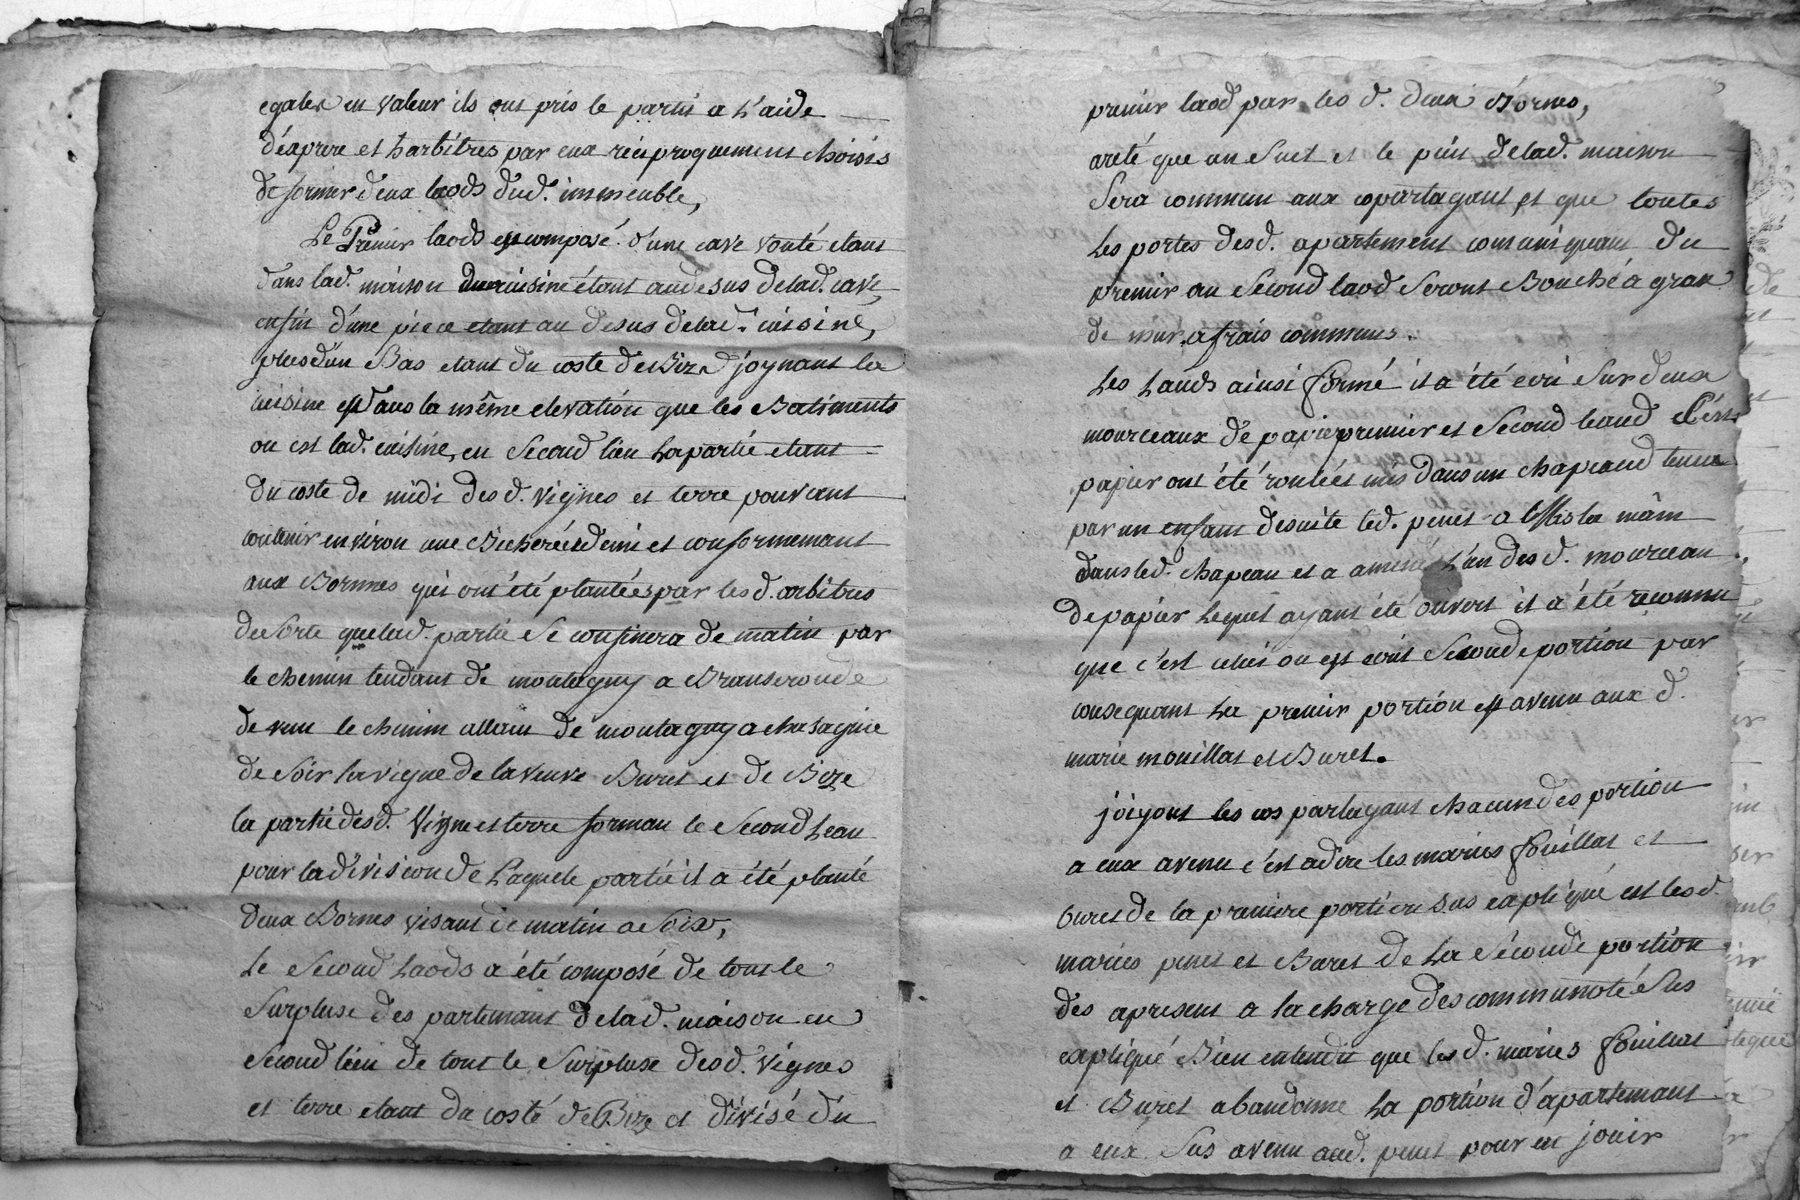 egales en valeur ils ont pris le partit a L'aide
d'expere et harbitres par eux reciproquement choisis
de former deux laods dud. immeuble,
Le Premir laods est composé d'une cave vouté etant
dans lad. maison cuisine étant audesus delad. cave
enfin d'une piece etant au desus delad. cuisine,
plus d'un Bas etant du coste de Bize joynant la
cuisine est dans la même elevation que les Batiments
ou est lad. cuisine, en Second lieu la partie etant
du coste de midi des d. vignes et terre pouvant
contenir environ une Bicheré et demi et conformemant
aux Bornnes qui ont été plantées par les d. arbitres
de sorte que lad. partie Se confinera de matin par
le chemin tendant de montagny a
de vent le chemin allant de montagny a chasagnie
de Soir la vigne de la veuve Buret et de Bize
la partie desd. Vigne et terre forman le Second Leau
pour la division de Laquele partie il a été planté
deux Bornes visant de matin a Soir,
Le Second Laods a été composé de tout le
Surpluse des partemant delad. maison en
Second lieu de tout le Surpluse desd. vignes
et terre etant du costé de Bize et divisé du
premir laod par les d. deux Bornes,
areté que un Suet et le puit delad. maison
Sera commun aux copartagant et que toutes
Les portes desd. apartement comuniquant du
premir au Second laod Seront Bouché a gran
de mur a frais communs.
Les Lauds ainsi formé il a été ecri Sur deux
mourceaux de papier premier et Second leaud
papier ont été roulées mis dans un chapeaud tenu
par un enfant desuite led. penet a mis la main
dans led. chapeau et a amené L'un des d. mourceau
de papier Lequel ayant été ouvert il a été reconnu
que c'est celui ou est ecrit Seconde portion par
consequant La premir portion est avenu aux d.
marie mouillat et Buret.
joiyont les cos partagant chacun des portion
a eux avenu c'est adire les maries fouillat et
buret de la premiere portion Sus expliqué est les d.
maries penet et Buret de La Séconde portion
dès apresent a la charge des communoté Sus
expliqué Bien entendu que les d. maries fouillat
et Buret abandonne La portion d'apartemant
a eux Sus avenu aud. penet pour en jouir